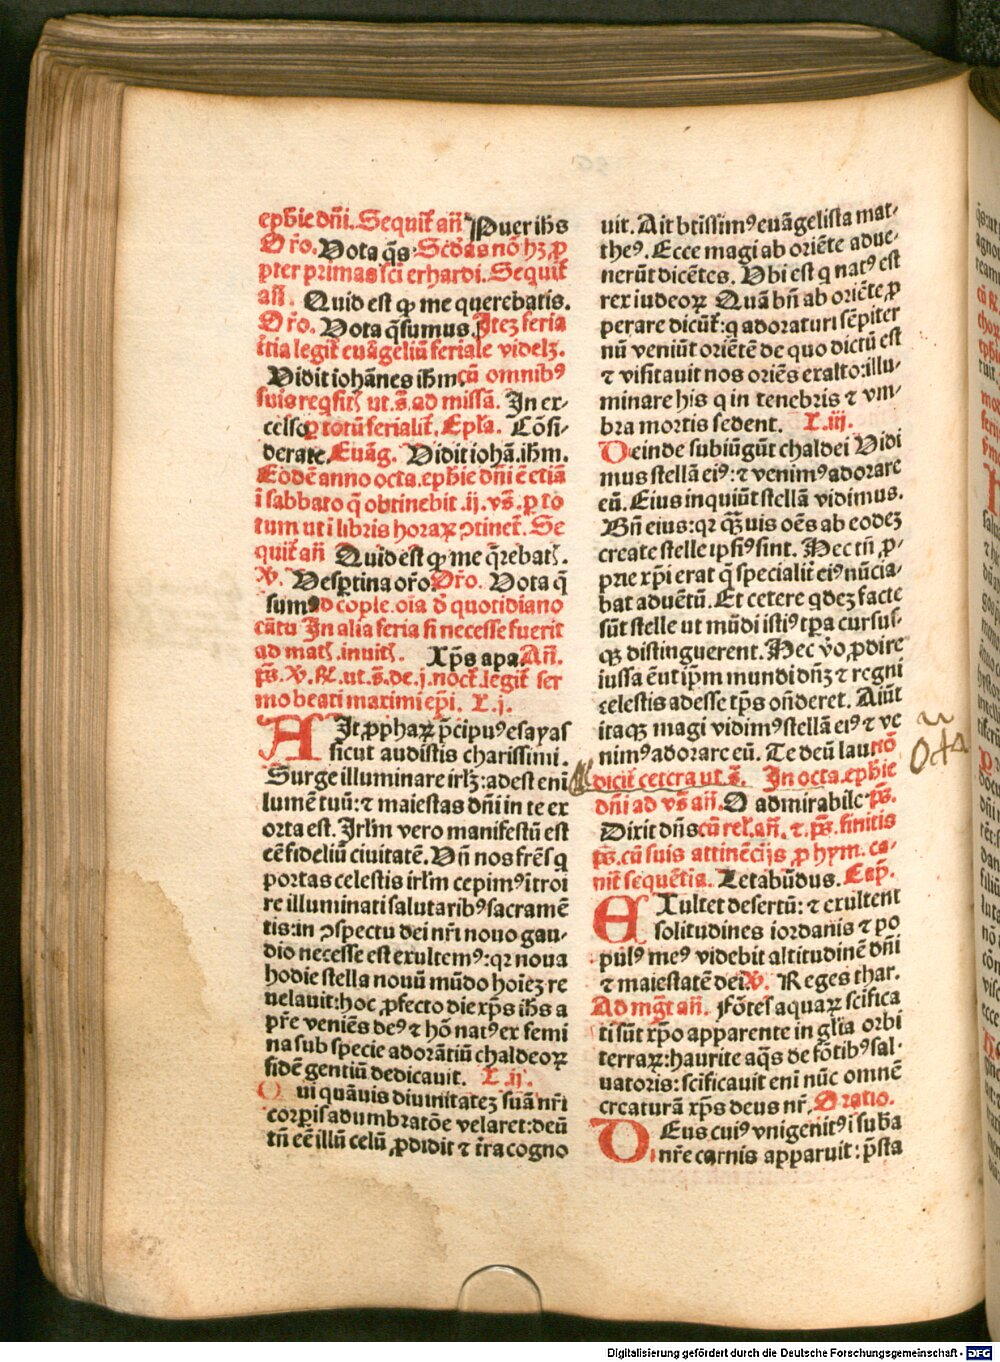 ephie dñi. Sequit᷑ añ Puer ihs
Oro. Vota q̄s Scd̓as nō hʒ ꝓ
pter primas sci erhardi. Sequit᷑
añ. Quid est ꝙ me querebatis.
Oro. Vota q̄sumus. Iteʒ feria
t̓tia legit᷑ euāgeliū feriale videlʒ.
Vidit iohānes ihm̄ cū omnibꝰ
suis reqsit̓ ut. s̄. ad missā. In ex-
celso ꝑ totū ferialit̓. Epl̓a. Cōsi-
derate. Euāg. Vidit iohā. ihm̄.
Eodē anno octa. ephie dñi ē etiā
ī sabbato q̄ obtinebit .ij. vs̄. ꝑ to
tum ut ī libris horaꝝ ꝯtinet᷑. Se
quit᷑ añ Quid est ꝙ me q̄rebat̓.
℣. Vesꝑtina oro. Oro. Vota q̄
sumꝰ Ad cople. oīa d̓ quotidiano
cātu In alia feria si necesse fuerit
ad mat̓. inuit̓. Xp̄s apa. Añ.
ps̄. ℣. ℟. ut. s̄. de .j. noct̓. legit᷑ ser
mo beati maximi ep̄i. L. j.
AIt ꝓphaꝝ p̄cipuꝰ esayas
sicut audistis charissimi.
Surge illuminare irlʒ: adest eni
lumē tuū: ⁊ maiestas dñi in te ex
orta est. Irl̓m vero manifestū est
eē fideliū ciuitatē. Vñ nos frēs q
portas celestis irl̓m cepimꝰ itroi
re illuminati salutaribꝰ sacramē
tis: in ꝯspectu dei nr̄i nouo gau-
dio necesse est exultemꝰ: qꝛ noua
hodie stella nouū mūdo hoieʒ re
uelauit: hoc ꝓfecto die xp̄s ihs a
pr̄e veniēs deꝰ ⁊ hō natꝰ ex femi
na sub specie adorātiū chaldeoꝝ
fidē gentiū dedicauit. L. ij.
Qui quāuis diuinitateʒ suā nr̄i
corꝑis adumbratōe velaret: deū
tñ eē illū celū ꝓdidit ⁊ t̓ra cogno
uit. Ait btissimꝰ euāgelista mat-
theꝰ. Ecce magi ab oriēte adue-
nerūt dicētes. Vbi est q natꝰ est
rex iudeoꝝ Quā bñ ab oriēte ꝓ
perare dicūt᷑: q adoraturi sēpiter
nū veniūt oriētē de quo dictū est
⁊ visitauit nos oriēs ex alto: illu-
minare his q in tenebris ⁊ vm-
bra mortis sedent. L. iij.
Deinde subiūgūt chaldei Vidi
mus stellā eiꝰ: ⁊ venimꝰ adorare
eū. Eius inquiūt stellā vidimus.
Bñ eius: qꝛ q̄ꝫuis oēs ab eodeʒ
create stelle ipsiꝰ sint. Hec tñ ꝓ-
prie xp̄i erat q̄ specialit̓ eiꝰ nūcia-
bat aduētū. Et cetere qdeʒ facte
sūt stelle ut mūdi istiꝰ tp̄a cursus-
qꝫ distinguerent. Hec v̓o ꝓdire
iussa ēut ip̄m mundi dñʒ ⁊ regni
celestis adesse tp̄s oñderet. Aiūt
itaqꝫ magi vidimꝰ stellā eiꝰ ⁊ ve
nimꝰ adorare eū. Te deū lau nō
dicit᷑ cetera ut. s̄. In octa. ephie
dñi ad vs̄ añ. O admirabile ps̄.
Dixit dñs cū rel̓. añ. ⁊. ps̄. finitis
ps̄. cū suis attinēcijs ꝓ hym. ca-
nit᷑ sequētia. Letabūdus. Cap̄.
EXultet desertū: ⁊ exultent
solitudines iordanis ⁊ po
pulꝰ meꝰ videbit altitudinē dñi
⁊ maiestatē dei ℣. Reges thar.
Ad mg̃t añ. Fōtes aquaꝝ scifica
ti sūt xp̄o apparente in gl̓ia orbi
terraꝝ: haurite aq̄s de fōtibꝰ sal-
uatoris: scificauit eni nūc omnē
creaturā xp̄s deus nr̄. Oratio.
DEus cuiꝰ vnigenitꝰ i suba
nr̄e carnis apparuit: p̄sta
Digitalisierung gefördert durch die Deutsche Forschungsgemeinschaft - DFG